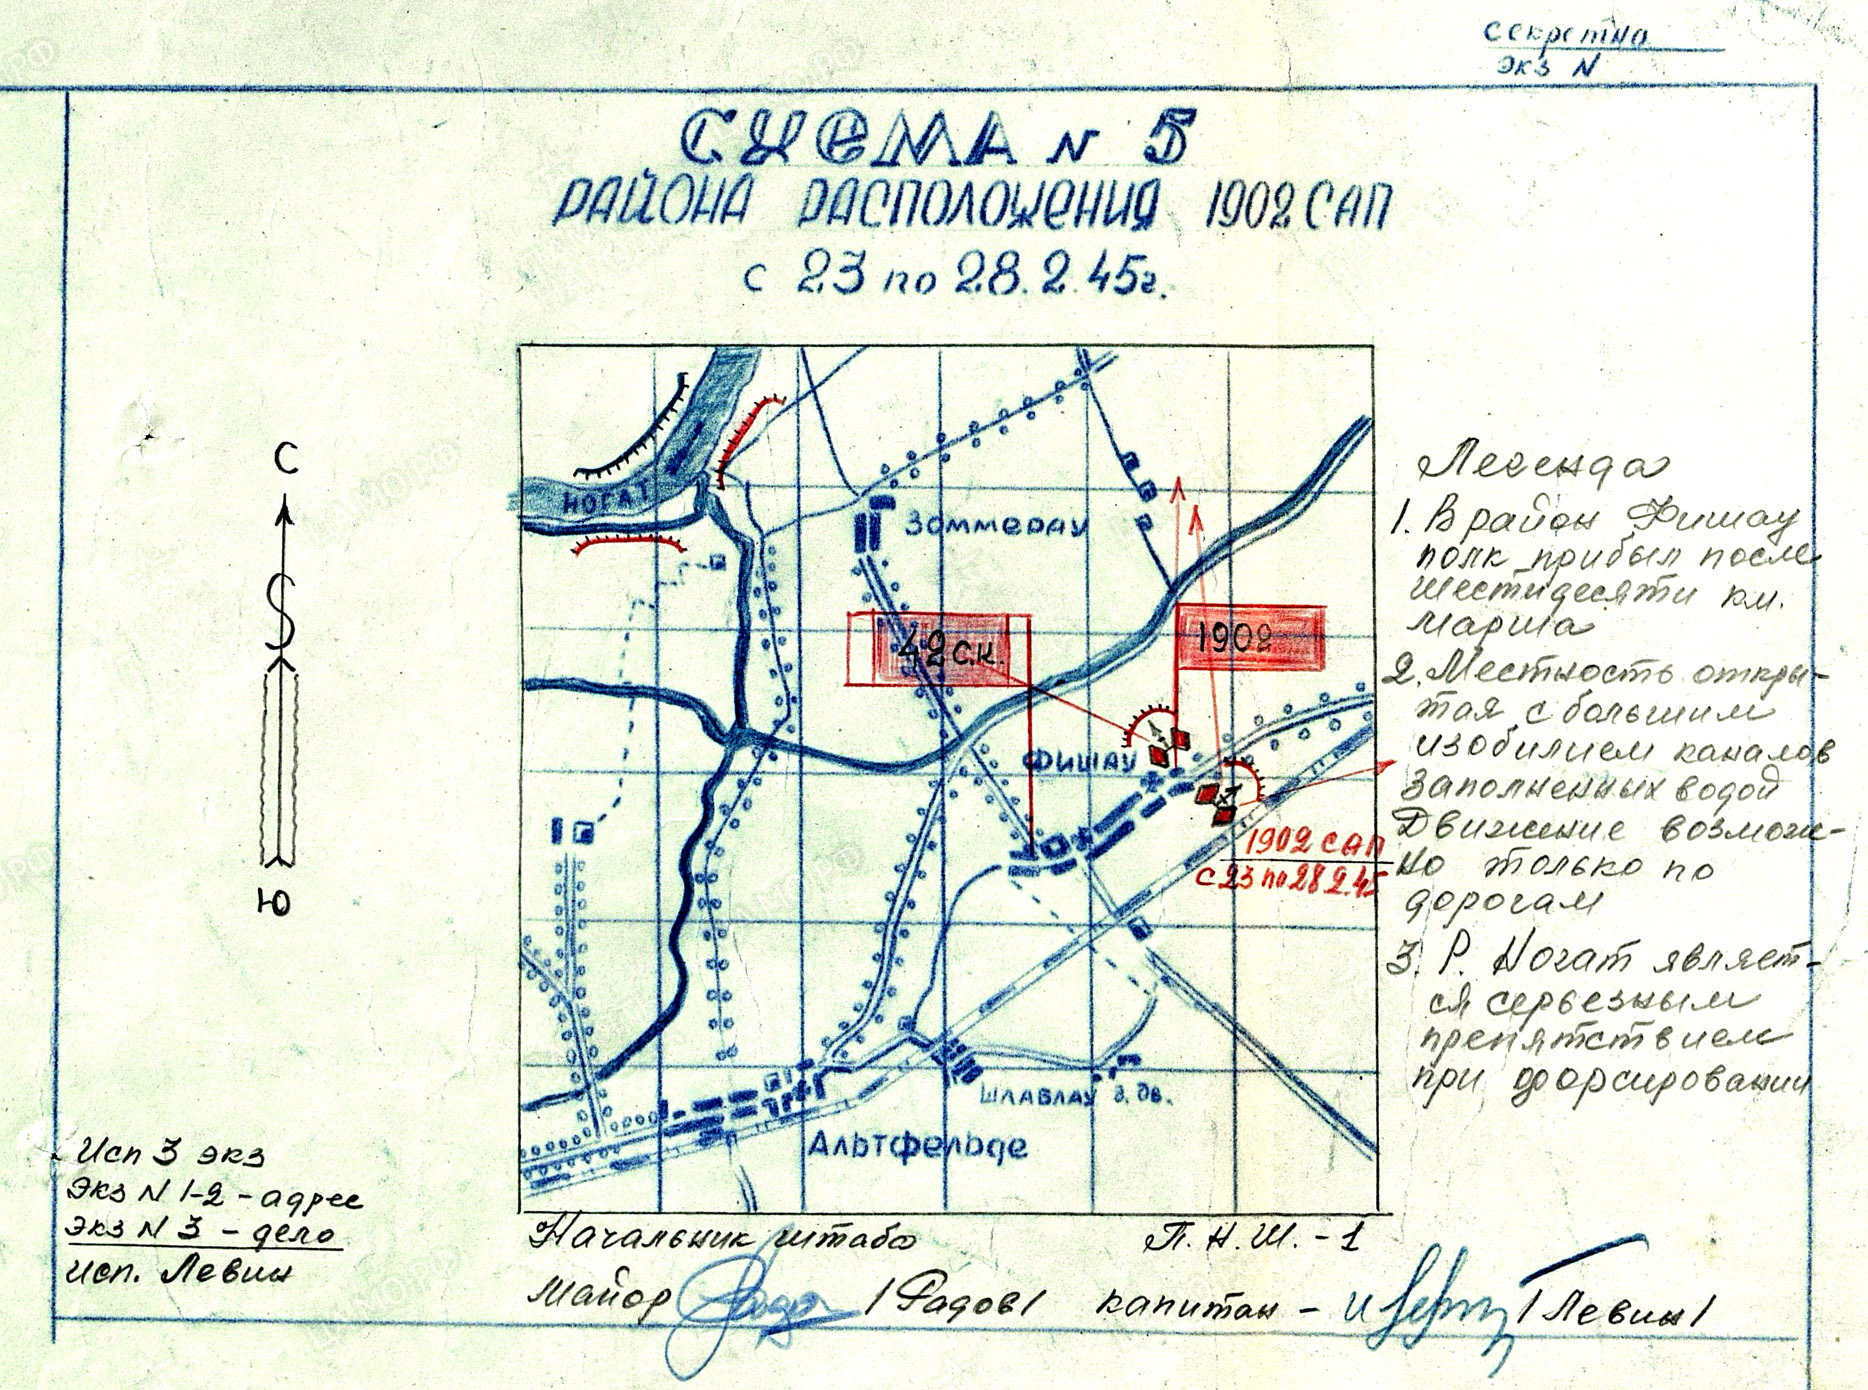 Секретно
Экз N
СХЕМА N 5
РАЙОНА РАСПОЛОЖЕНИЯ 1902 САП
с 23 по 28.2.45г.
С
Ю
НОГАТ
Зоммерау
42 с.к.
1902
Фишау
1902 САП
с 23 по 28 2.45
Шлаблау г. дв.
Альтфельде
Легенда
1. В район Фишау
полк прибыл после
шестидесяти км.
марша
2. Местность откры-
тая с большим
изобилием каналов
заполненных водой
Движение возмож-
но только по
дорогам
3. Р. Ногат являет-
ся серьезным
препятствием
при форсировании
Исп 3 экз
Экз N 1-2 - адрес
Экз N 3 - дело
исп. Левин
Начальник штаба
Майор /Радов/
П.Н.Ш. - 1
капитан - /Левин/